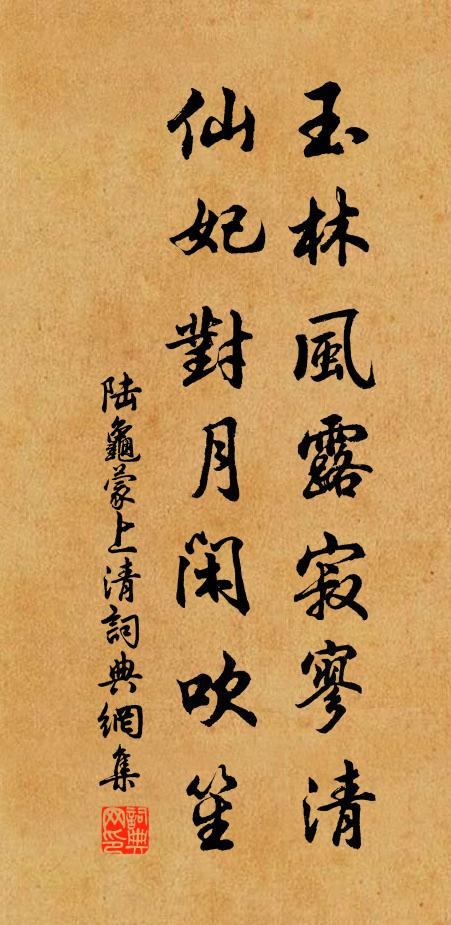 玉林風露寂寥清
仙妃對月閑吹笙
陆龜蒙上清詞典網集
詞典網印